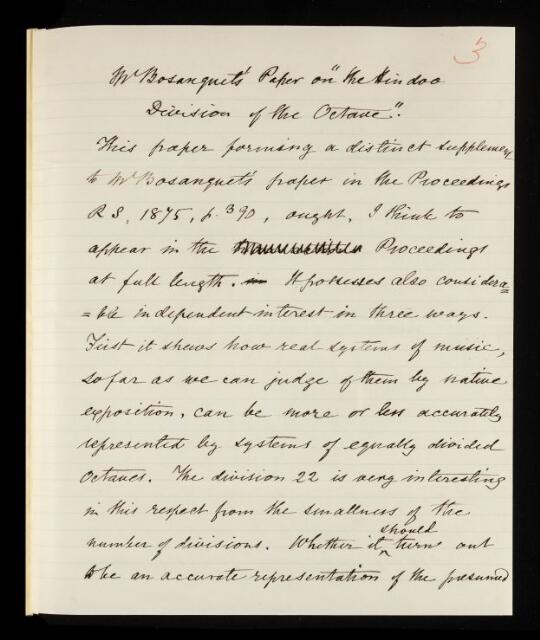 3
Mr Bosanquet's Paper on "the Hindoo
Division of the Octave".
This paper forming a distinct supplement
to Mr Bosanquet's paper in the Proceedings
R S, 1875, p. 390, ought, I think to
appear in the Proceedings
at full length. in It possesses also considera=
=ble independent interest in three ways.
First it shews how real systems of music,
so far as we can judge of them by native
exposition, can be more or less accurately
represented by systems of equally divided
Octaves. The division 22 is very interesting
in this respect from the smallness of the
number of divisions. Whether it should turn out
to be an accurate representation of the presumed